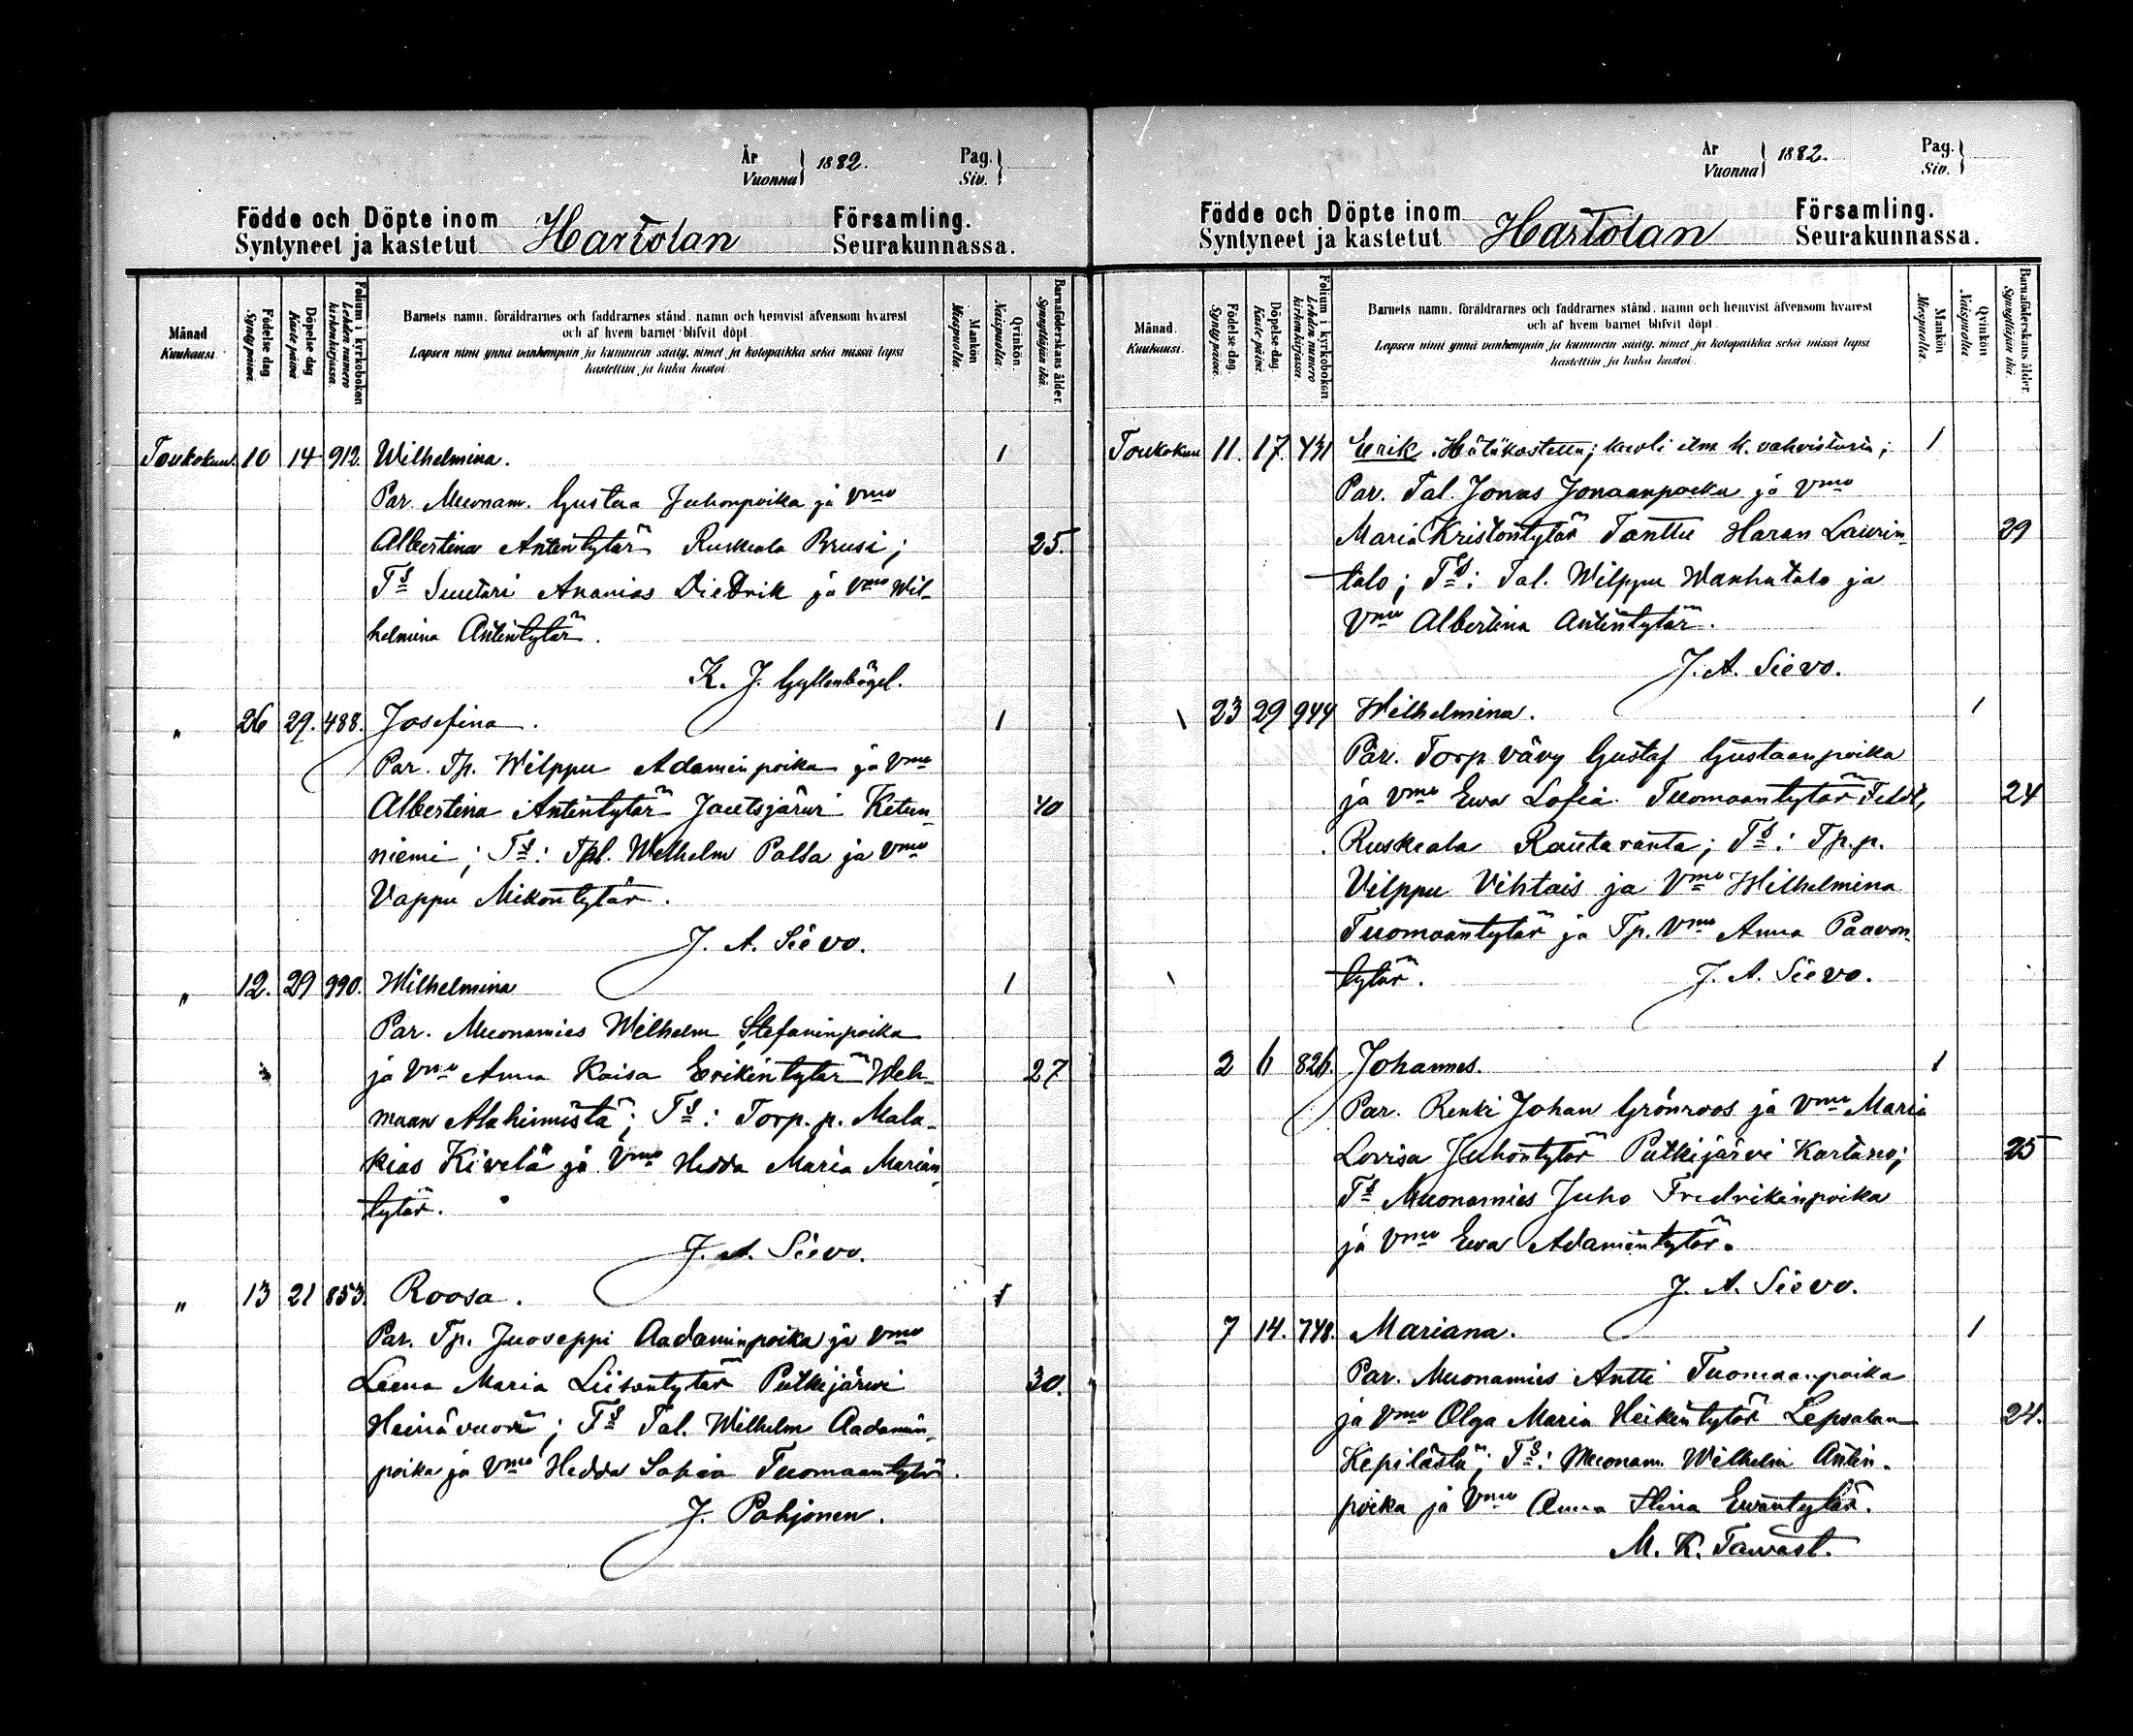 År 1882. Pag.
Vuonna Siv.
Födde och Döpte inom Hartolan Församling.
Syntyneet ja kastetut Seurakunnassa.
Månad Kuukausi.
Födelse dag Synty päivä.
Döpelse dag Kaste päivä
Folium i kyrkobokon Lehden numero kirkonkirjassa.
Barnets namn, föräldrarnes och faddrarnes stånd, namn och hemvist äfvensom hvarest
och af hvem barnet blifvit döpt.
Lapsen nimi ynnä vanhempain ja kummein sääty, nimet ja kotopaikka sekä missä lapsi
kastettiin ja kuka kastoi.
Mankön Miespuolia.
Qvinkön Naispuolia.
Barnaföderskans ålder. Synnyttäjän ikä.
Toukokuu. 10 14 912. Wilhelmina. 1
Par. Muonam. Gustaa Juhonpoika ja Vmo
Albertina Antintytär Ruskeala Prusi; 25.
Ts Suutari Ananias Diedrik ja Vmo Wil-
helmina Antintytär.
K. J. Gyllenbögel.
" 26 29. 488. Josefina. 1
Par. Tp. Wilppu Adaminpoika ja Vmo
Albertina Antintytär Jautsjärwi Ketun- 40
niemi; Ts: Tpl. Wilhelm Palsa ja Vmo
Vappu Mikontytär.
J. A. Sievo.
" 12. 29 990. Wilhelmina 1
Par. Muonamies Wilhelm Stefaninpoika
ja Vmo Anna Kaisa Erikintytär Weh- 27
maan Alahimista; Ts: Torp. p. Mala-
kias Kivelä ja Vmo Hedda Maria Marian
tytär.
J. A. Sievo.
" 13 21 853. Roosa. 1
Par. Tp. Juoseppi Aadaminpoika ja Vmo
Leena Maria Liisantytär Putkijärwi 30.
Heinävuori; Ts Tal. Wilhelm Aadamin-
poika ja Vmo Hedda Sofia Tuomaantytär.
J. Pohjonen.
År 1882. Pag.
Vuonna Siv.
Födde och Döpte inom Hartolan Församling.
Syntyneet ja kastetut Seurakunnassa.
Månad. Kuukausi.
Födelse-dag. Synty päivä.
Döpelse-dag. Kaste-päivä
Folium i kyrkobokon Lehden numero kirkonkirjassa.
Barnets namn, föräldrarnes och faddrarnes stånd, namn och hemvist äfvensom hvarest
och af hvem barnet blifvit döpt.
Lapsen nimi ynnä vanhempain ja kummein sääty, nimet ja kotopaikka sekä missä lapsi
kastettiin ja kuka kastoi.
Mankön Miespuolia.
Qvinkön Naispuolia
Barnaföderskans ålder. Synnyttäjän ikä.
Toukokuu 11. 17. 431 Eerik. Hätäkastettu; kuoli ilm k. vahvistusta; 1
Par. Tal. Jonas Jonaanpoika ja Vmo
Maria Kristontytär Tanttu Haran Laurin- 29
talo; Ts: Tal. Wilppu Wanhatalo ja
Vmo Albertina Antintytär.
J. A. Sievo.
23 29 944 Wilhelmina. 1
Par. Torp vävy Gustaf Gustaanpoika
ja Vmo Ewa Sofia Tuomaantytär Feldt, 24
Ruskeala Rautaranta; Ts: Tp.p.
Vilppu Vihtais ja Vmo Wilhelmina
Tuomaantytär ja Tp. Vmo Anna Paavon-
tytär. J. A. Sievo.
2 6 826. Johannes. 1
Par. Renki Johan Grönroos ja Vmo Maria
Lovisa Juhontytär Putkijärvi Kartano; 25
Ts Muonamies Juho Fredrikinpoika
ja Vmo Ewa Adamintytär.
J. A. Sievo.
7 14. 748. Mariana. 1
Par. Muonamies Antti Tuomaanpoika
ja Vmo Olga Maria Heikintytär Lepsalan 24.
Kepilästä; Ts: Muonam. Wilhelm Antin-
poika ja Vmo Anna Stina Ewantytär.
M. K. Tawast.